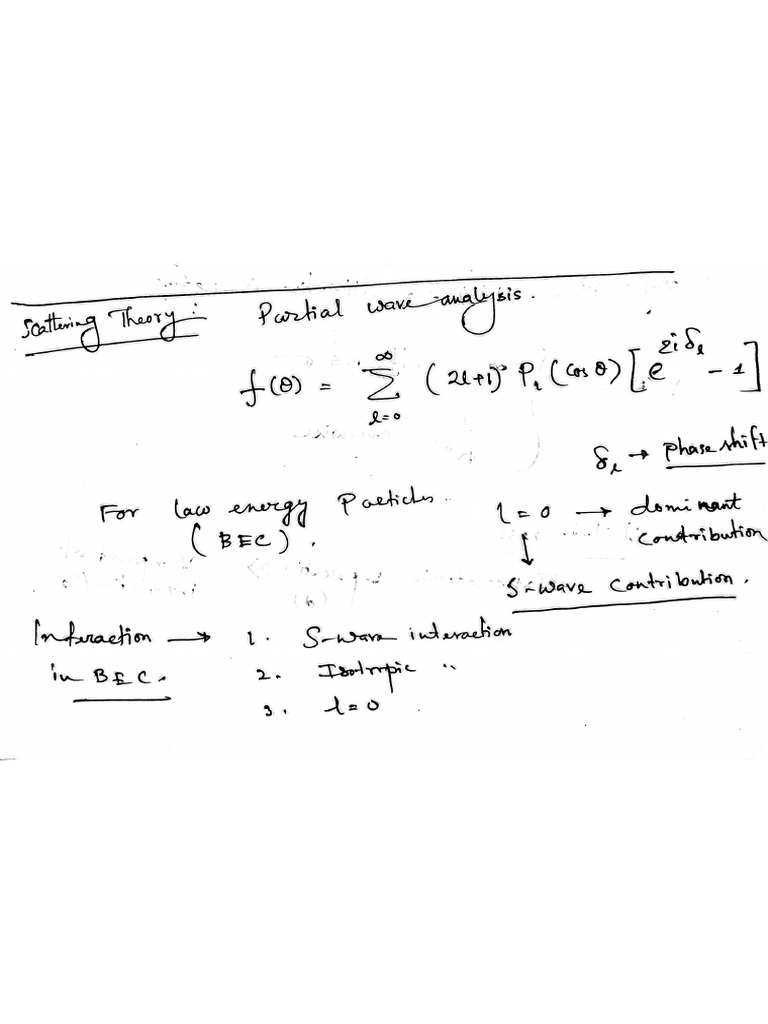 Scattering Theory: Partial wave analysis.
f(θ) = ∑_{l=0}^{∞} (2l+1) P_l (cos θ) [e^{2iδ_l} - 1]
δ_l → Phase shift
For low energy Particles.. l = 0 → dominant
(BEC). contribution
↓
S-wave contribution.
Interaction → 1. S-wave interaction
in BEC. 2. Isotropic "
3. l = 0